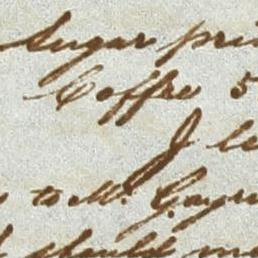 Sugar pri
Coffee 5
I le
to Mr. Gayn
should me